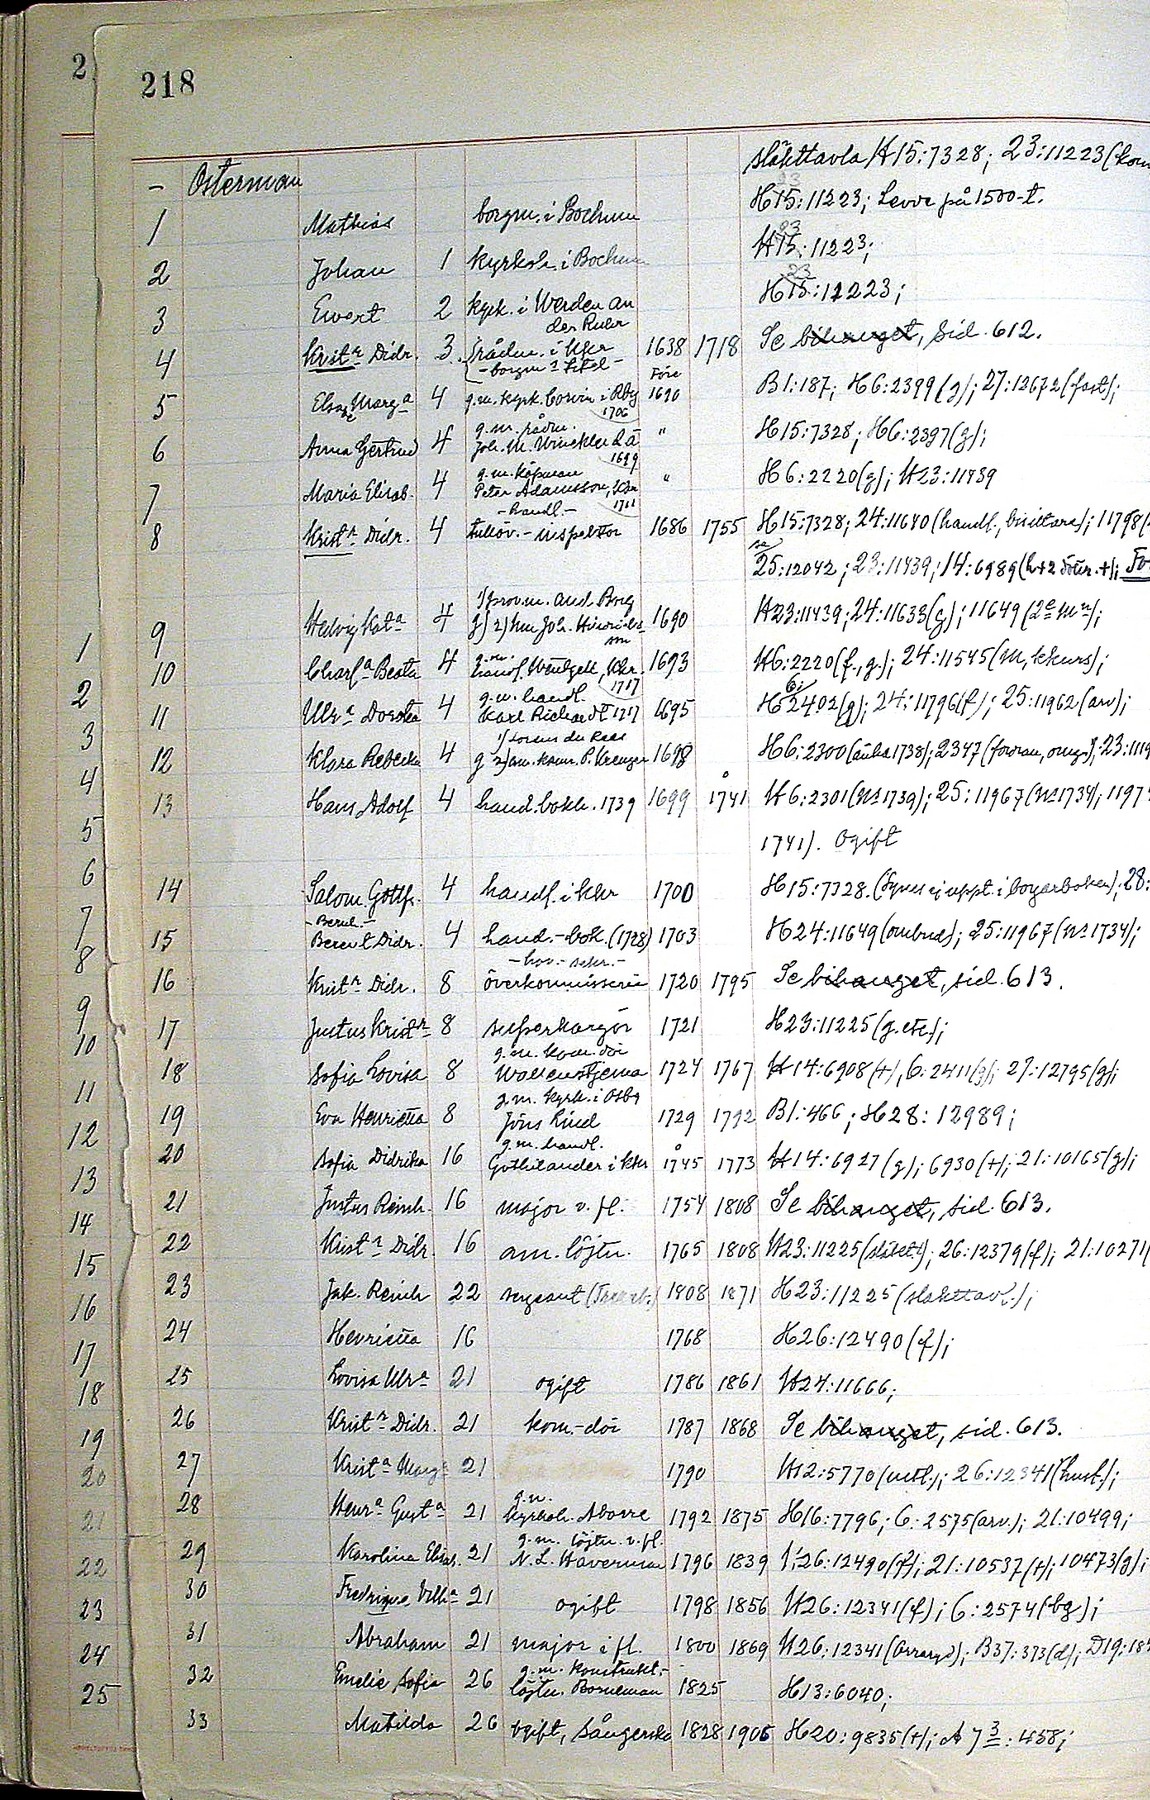 2
218
– Osterman släkttavla H15:7328; 23:11223
1 Mathias borgm. i Bochum H15:11223; Levde på 1500-t.
2 Johan 1 kyrkoh. i Bochum 23 H15:11223;
3 Evert 2 kyrk. i Werden an der Ruhr 23 H15:11223;
4 Kristn Didr. 3 rådm. i Kkr – borgm:s titel – 1638 1718 Se bihanget, sid. 612.
5 Marga 4 g.m. kyrk. Corvin i Rby 1706 Före 1690 B1:187; H6:2399(g); 27:12672(fast);
6 Anna Gertrud 4 g.m. rådm. Joh. M. Winckler d.ä 1699 " H15:7328; H6:2397(g);
7 Maria Elisab. 4 g.m. köpman Peter Adamsson, Kkr 1711 " H6:2220(g); H23:11439
8 Kristn Didr. 4 – handl. – tullöv.-inspektor 1686 1755 H15:7328; 24:11640(handl., bisittare); 11798
25:12042; 23:11439; 14:6989(h+2 dötr. +);
9 Hedvig Kata 4 g) 2) hm Joh. Hinrichsson 1690 H23:11439; 24:11633(g); 11649(2e m n);
10 Charla Beata 4 g.m. handl. Wentzell, Kkr. 1717 1693 H6:2220(f., g.); 24:11545(m, kkurs);
11 Ulra Dorotea 4 g.m. handl. Karl Richardt 1717 1695 H6:2402(g); 24:11796(f); 25:11962(arv);
12 Klara Rebecka 4 g 1) Lorens du Rees 2) am. kamr. P. Kreuger 1698 H6:2300(änka 1738); 2347(förran, omg); 23:
13 Hans Adolf 4 hand. bokh. 1739 1699 1741 H6:2301(No 1739); 25:11967(No 1734);
1741). Ogift
14 Salom. Gottfr. 4 handl. i Kkr 1700 H15:7328. (Synes ej uppt. i borgarboken); 28:
15 – Bernh. – Berent Didr. 4 hand.-bok. (1728) 1703 H24:11649(ombud); 25:11967(No 1734);
16 Kristn Didr. 8 – hov.-sekr. – överkommissarie 1720 1795 Se bihanget, sid. 613.
17 Justus Kristn 8 superkargör 1721 H23:11225(g. etc.);
18 Sofia Lovisa 8 g.m. kom.-dör Wollenstjerna 1724 1767 H14:6908(+), 6:2411(g); 27:12795(g);
19 Eva Henrietta 8 g.m. kyrk. i Osby Jöns Lind 1729 1792 B1:466; H28:12989;
20 Sofia Didrika 16 g.m. handl. Gothilander i Kkr 1745 1773 H14:6927(g); 6930(+); 21:10165(g);
21 Justus Reinh. 16 major v. fl. 1754 1808 Se bihanget, sid. 613.
22 Kristn Didr. 16 am. löjtn. 1765 1808 H23:11225(släktt); 26:12379(f); 21:10271(
23 Jak. Reinh 22 sergeant 1808 1871 H23:11225(släkttavl.);
24 Henrietta 16 1768 H26:12490(f);
25 Lovisa Ulra 21 ogift 1786 1861 H24:11666;
26 Kristn Didr. 21 kom.-dör 1787 1868 Se bihanget, sid. 613.
27 Krista Marga 21 1790 H12:5770(utfl.); 26:12341(hust.);
28 Henra Gusta 21 g.m. kyrkoh. Aborre 1792 1875 H16:7796; 6:2575(arv.); 21:10499;
29 Karolina Elisa. 21 g.m. löjtn. v. fl. N. L. Haverman 1796 1839 26:12490(f); 21:10537(+); 10473(g);
30 Fredrique Vilha 21 ogift 1798 1856 H26:12341(f); 6:2574(bg);
31 Abraham 21 major i fl. 1800 1869 H26:12341(d); B37:373(d); D19:
32 Emelie Sofia 26 g.m. konstrukt.-löjtn. Borneman 1825 H13:6040;
33 Matilda 26 ogift, sångerska 1828 1906 H20:9835(+); A 7 3:458;
1
2
3
4
5
6
7
8
9
10
11
12
13
14
15
16
17
18
19
20
21
22
23
24
25